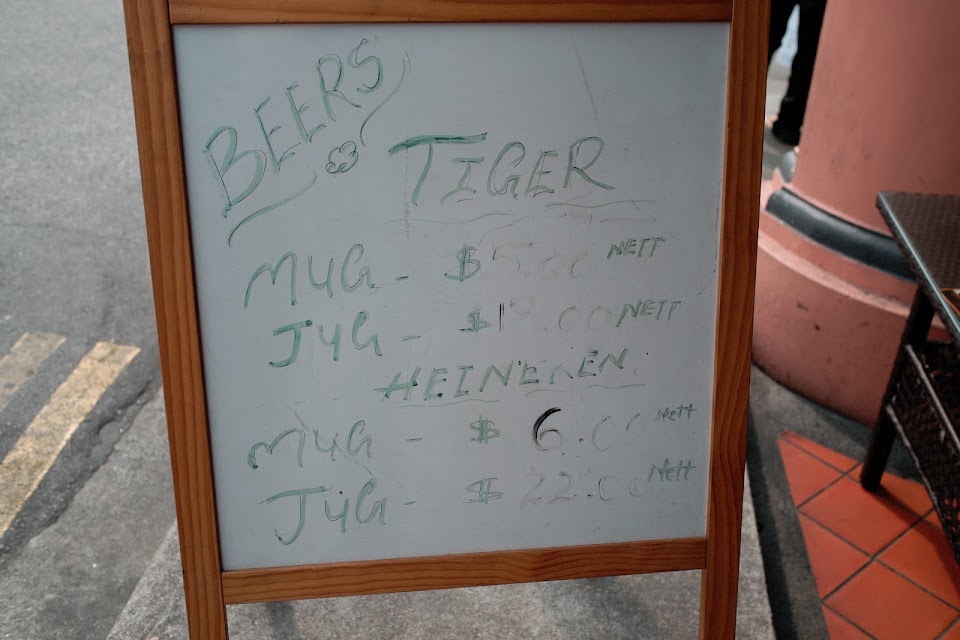 BEERS
TIGER
MUG - $5.00 NETT
JUG - $18.00 NETT
HEINEKEN
MUG - $6.00 Nett
JUG - $22.00 Nett